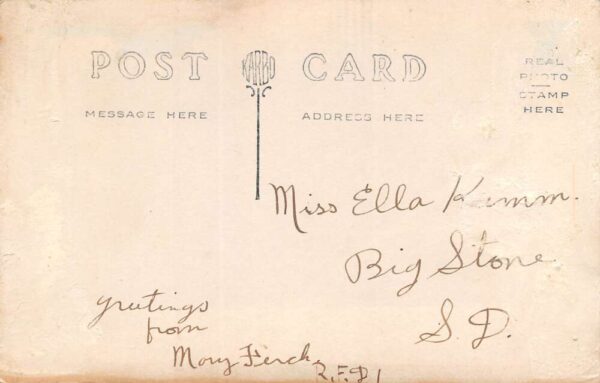 POST KARBO CARD
REAL
PHOTO
STAMP
HERE
MESSAGE HERE
ADDRESS HERE
Miss Ella Kimm.
Big Stone
S. D.
greetings
from
Mary Ferch
R.F.D 1